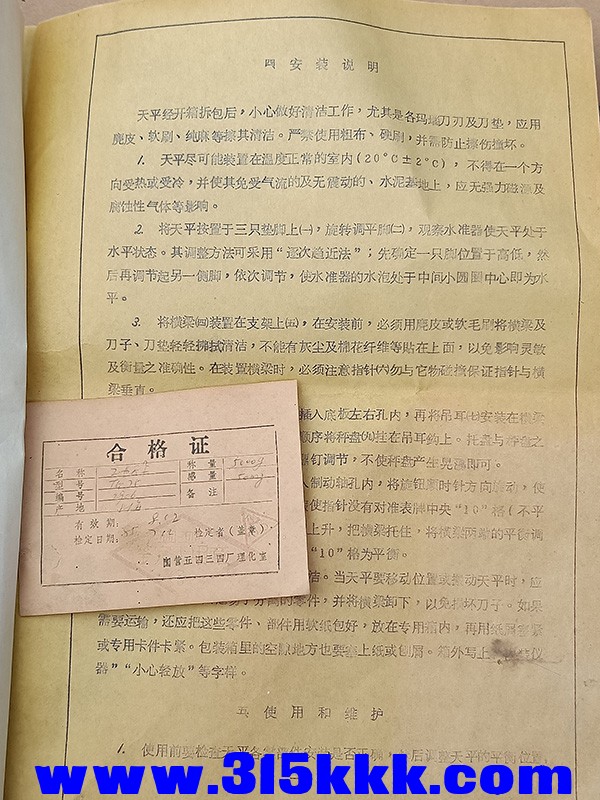 四 安 装 说 明
天平经开箱拆包后，小心做好清洁工作，尤其是各玛瑙刀刃及刀垫，应用
麂皮、软刷、纯麻等擦其清洁。严禁使用粗布、硬刷，并需防止擦伤撞坏。
1. 天平尽可能装置在温度正常的室内（20°C±2°C），不得在一个方
向受热或受冷，并使其免受气流的及无震动的、水泥基地上，应无强力磁源及
腐蚀性气体等影响。
2. 将天平按置于三只垫脚上㈠，旋转调平脚㈡，观察水准器使天平处于
水平状态。其调整方法可采用“逐次趋近法”；先确定一只脚位置于高低，然
后再调节起另一侧脚，依次调节，使水准器的水泡处于中间小圆圈中心即为水
平。
3. 将横梁㈣装置在支架上㈤，在安装前，必须用麂皮或软毛刷将横梁及
刀子、刀垫轻轻拂拭清洁，不能有灰尘及棉花纤维等贴在上面，以免影响灵敏
及衡量之准确性。在装置横梁时，必须注意指针㈥勿与它物碰撞保证指针与横
梁垂直。
插入底板左右孔内，再将吊耳㈦安装在横梁
顺序将秤盘㈨挂在吊耳钩上。托盘与秤盘之
螺钉调节，不使秤盘产生晃荡即可。
入制动轴孔内，将旋钮顺时针方向旋动，使
使指针没有对准表牌中央“10”格（不平
上升，把横梁托住，将横梁两端的平衡调
“10”格为平衡。
洁。当天平要移动位置或搬动天平时，应
的零件，并将横梁卸下，以免损坏刀子。如果
需要运输，还应把这些零件、部件用软纸包好，放在专用箱内，再用纸屑塞紧
或专用卡件卡紧。包装箱里的空隙地方也要塞上纸或刨屑。箱外写上
器”“小心轻放”等字样。
五 使 用 和 维 护
1. 使用前要检查天平各零部件安装是否正确，然后调整天平的平衡位置，
合 格 证
名 称 天平
称 量 5000g
型 号
感 量
编 号
备 注
产 地
有 效 期：
检定日期： 检定者（盖章）
国营五四三四厂理化室
www.315kkk.com